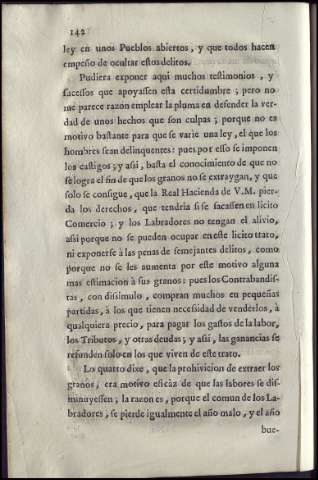 142
ley en unos Pueblos abiertos, y que todos hacen
empeño de ocultar estos delitos.
Pudiera exponer aqui muchos testimonios, y
sucessos que apoyassen esta certidumbre; pero no
me parece razon emplear la pluma en defender la ver-
dad de unos hechos que son culpas; porque no es
motivo bastante para que se varie una ley, el que los
hombres sean delinquentes: pues por esso se imponen
los castigos; y assi, basta el conocimiento de que no
se logra el fin de que los granos no se extraygan, y que
solo se consigue, que la Real Hacienda de V.M. pier-
da los derechos, que tendria si se sacassen en licito
Comercio; y los Labradores no tengan el alivio,
assi porque no se pueden ocupar en este licito trato,
ni exponerse à las penas de semejantes delitos, como
porque no se les aumenta por este motivo alguna
mas estimacion à sus granos: pues los Contrabandis-
tas, con dissimulo, compran muchos en pequeñas
partidas, à los que tienen necessidad de venderlos, à
qualquiera precio, para pagar los gastos de la labor,
los Tributos, y otras deudas; y assi, las ganancias se
refunden solo en los que viven de este trato.
Lo quarto dixe, que la prohivicion de extraer los
granos, era motivo eficàz de que las labores se dis-
minuyessen; la razon es, porque el comun de los La-
bradores, se pierde igualmente el año malo, y el año
bue-